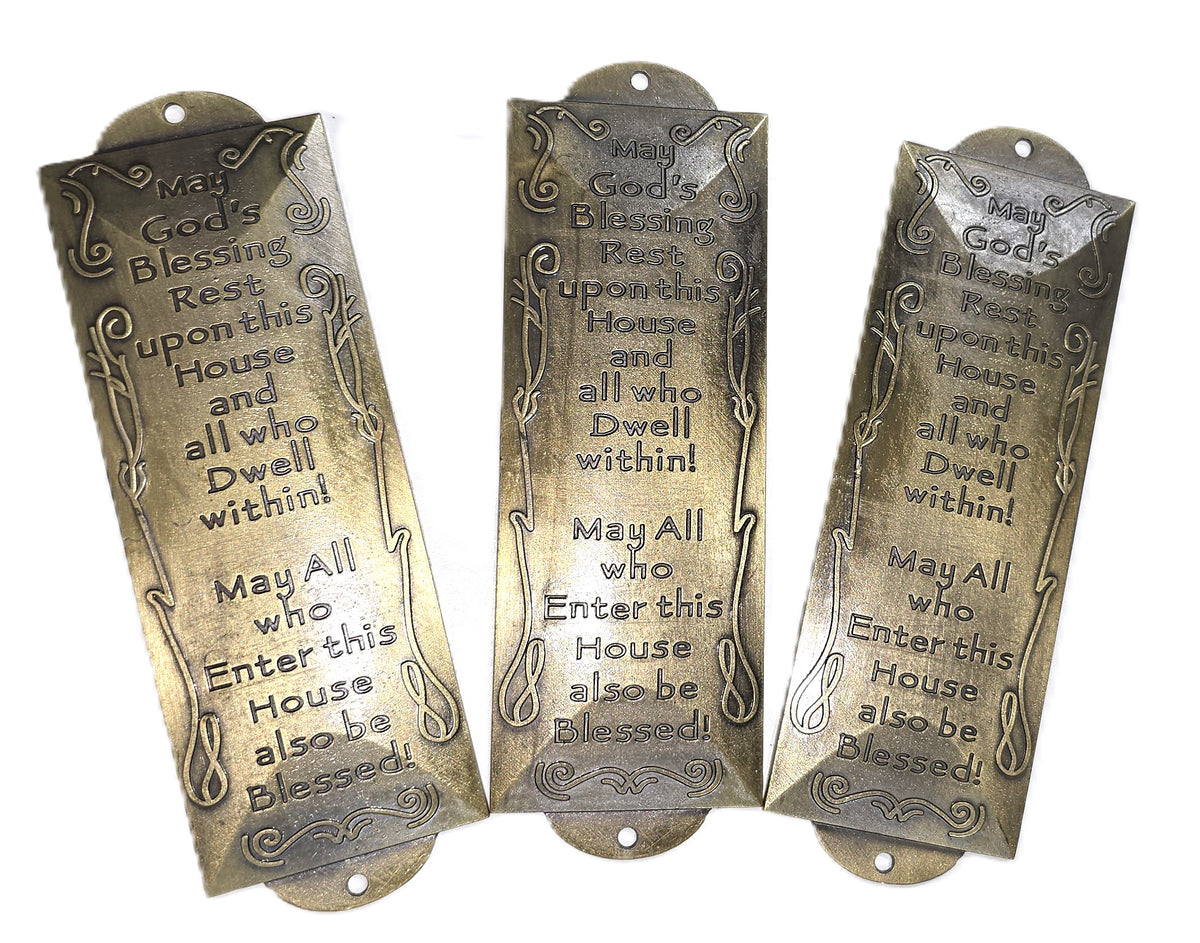 May
God's
Blessing
Rest
upon this
House
and
all who
Dwell
within!
May All
who
Enter this
House
also be
Blessed!
May
God's
Blessing
Rest
upon this
House
and
all who
Dwell
within!
May All
who
Enter this
House
also be
Blessed!
May
God's
Blessing
Rest
upon this
House
and
all who
Dwell
within!
May All
who
Enter this
House
also be
Blessed!